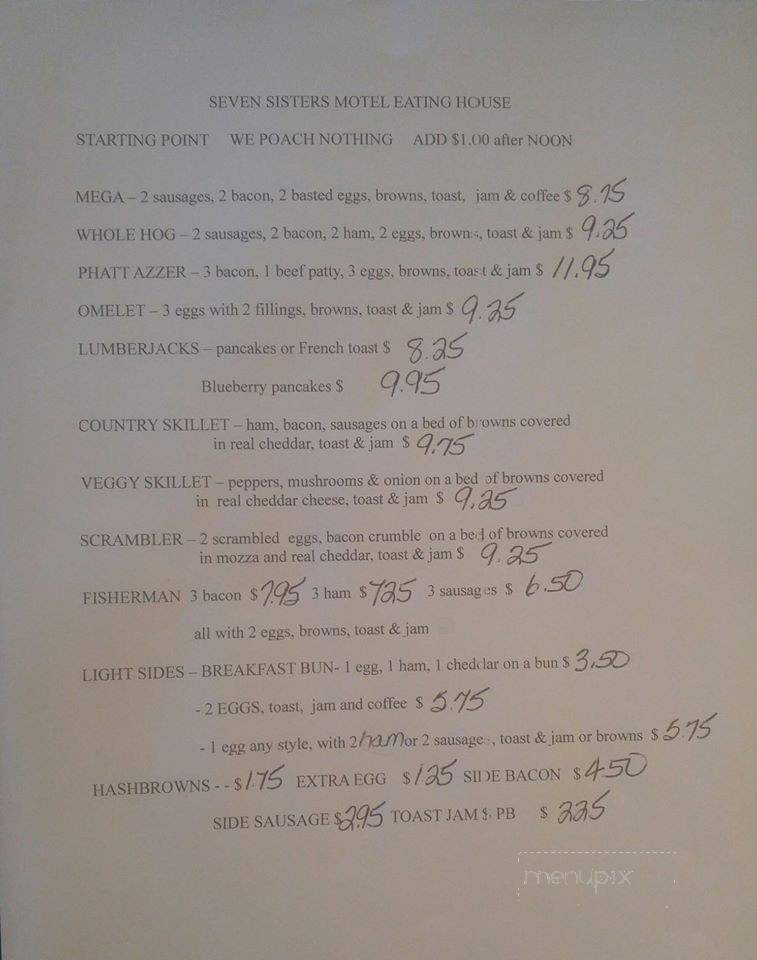 SEVEN SISTERS MOTEL EATING HOUSE
STARTING POINT WE POACH NOTHING ADD $1.00 after NOON
MEGA – 2 sausages, 2 bacon, 2 basted eggs, browns, toast, jam & coffee $ 8.75
WHOLE HOG – 2 sausages, 2 bacon, 2 ham, 2 eggs, browns, toast & jam $ 9.25
PHATT AZZER – 3 bacon, 1 beef patty, 3 eggs, browns, toast & jam $ 11.95
OMELET – 3 eggs with 2 fillings, browns, toast & jam $ 9.25
LUMBERJACKS – pancakes or French toast $ 8.25
Blueberry pancakes $ 9.95
COUNTRY SKILLET – ham, bacon, sausages on a bed of browns covered
in real cheddar, toast & jam $ 9.75
VEGGY SKILLET – peppers, mushrooms & onion on a bed of browns covered
in real cheddar cheese, toast & jam $ 9.25
SCRAMBLER – 2 scrambled eggs, bacon crumble on a bed of browns covered
in mozza and real cheddar, toast & jam $ 9.25
FISHERMAN 3 bacon $ 7.95 3 ham $ 7.25 3 sausages $ 6.50
all with 2 eggs, browns, toast & jam
LIGHT SIDES – BREAKFAST BUN- 1 egg, 1 ham, 1 cheddar on a bun $ 3.50
- 2 EGGS, toast, jam and coffee $ 5.75
- 1 egg any style, with 2 ham or 2 sausages, toast & jam or browns $ 5.75
HASHBROWNS - - $ 1.75 EXTRA EGG $ 1.25 SIDE BACON $ 4.50
SIDE SAUSAGE $ 2.95 TOAST JAM & PB $ 2.25
menupix